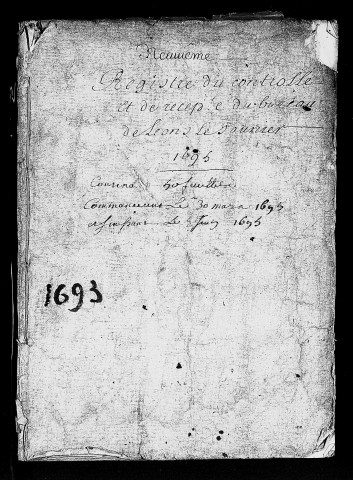 Neuvième
Registre du controlle
et de recepte du bureau
de Lions le Saunier
1693
Contena 50 feuillets
Commencent Le 30 mars 1693
et finissant Le Juin 1693
1693